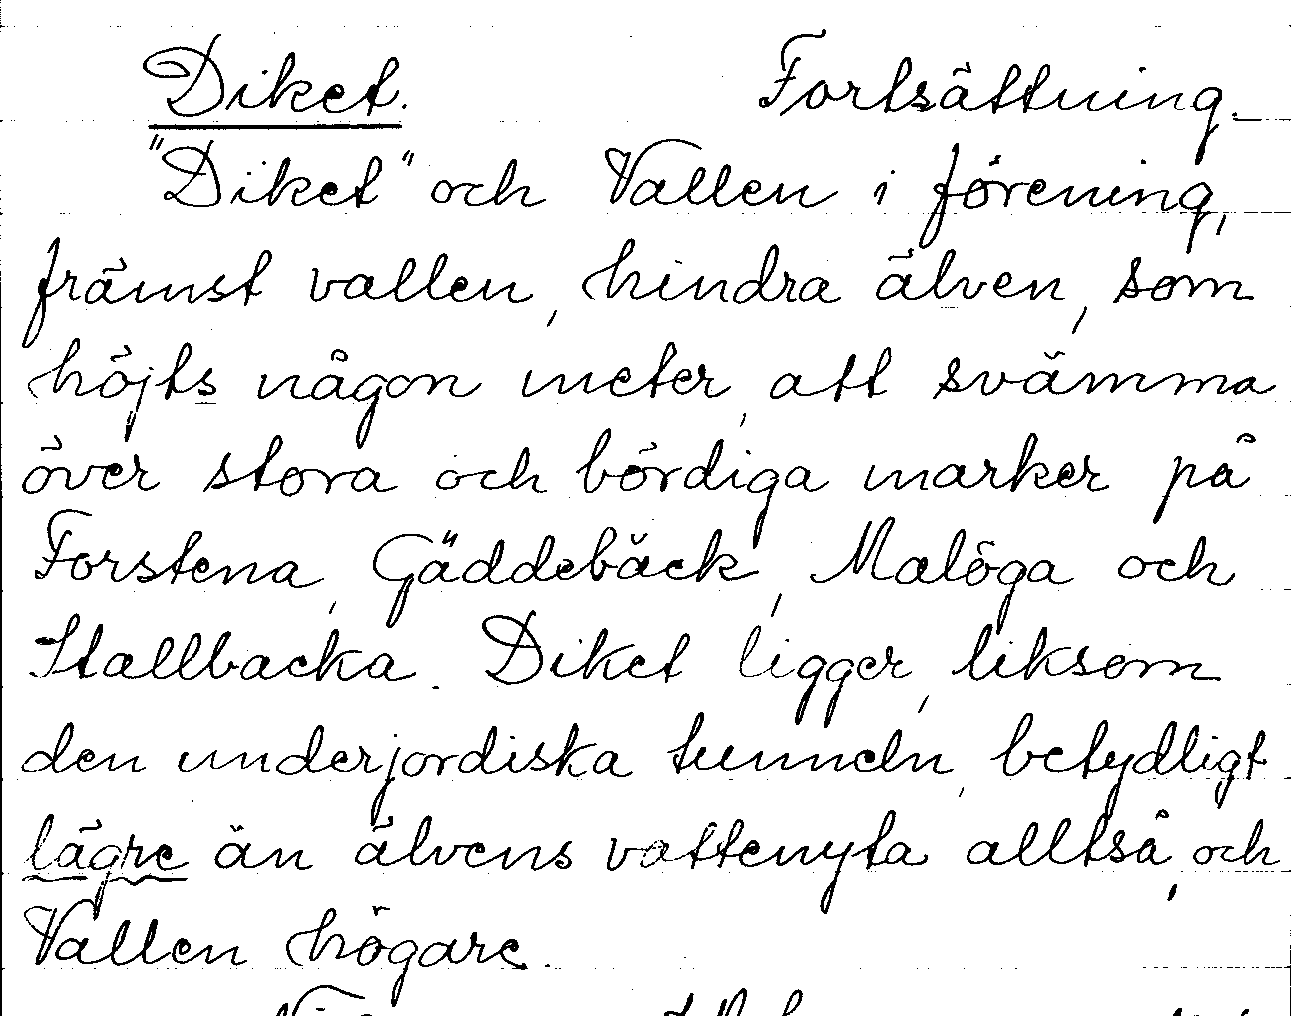 Diket. Fortsättning.
"Diket" och Vallen i förening,
främst vallen, hindra älven, som
höjts någon meter, att svämma
över stora och bördiga marker på
Forstena, Gäddebäck, Malöga och
Stallbacka. Diket ligger, liksom
den underjordiska tunneln, betydligt
lägre än älvens vattenyta alltså, och
Vallen högare.